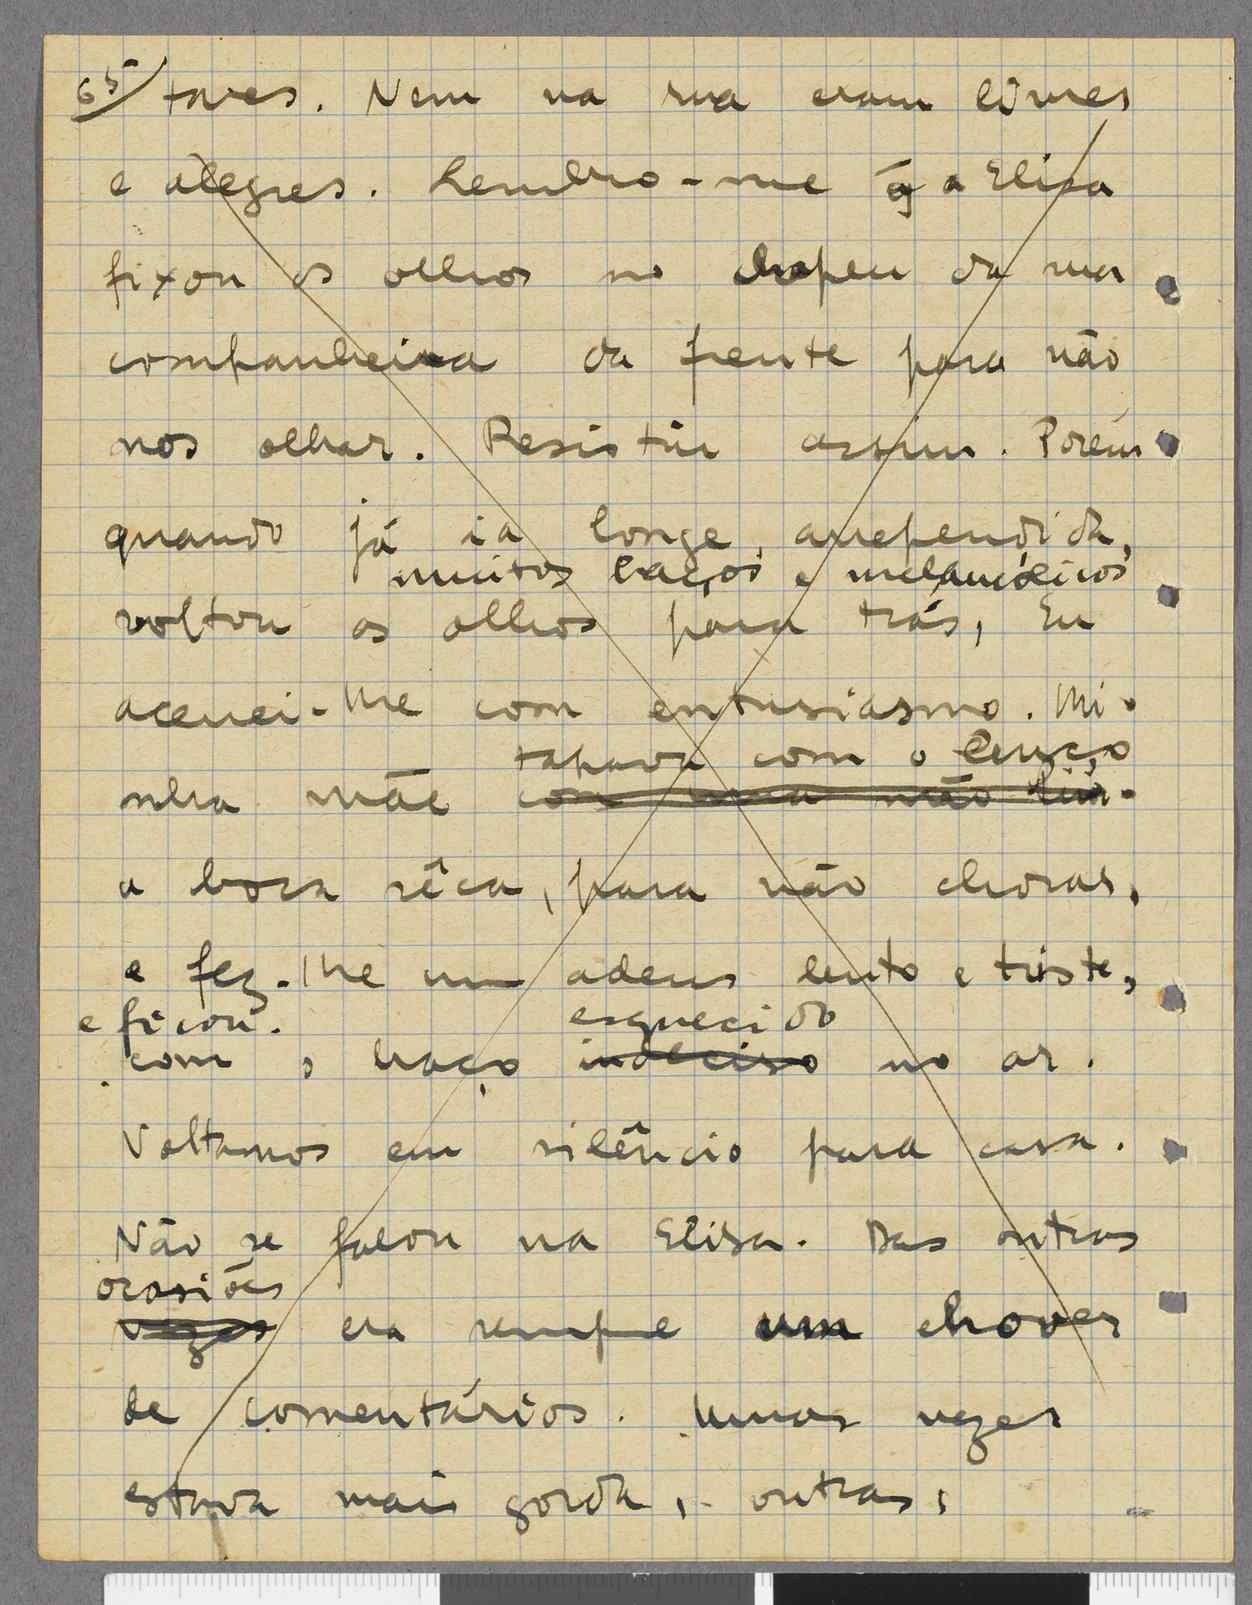 65/ tares. Nem na rua eram livres
e alegres. Lembro-me q̃ a Elisa
fixou os olhos no chapeu da sua
companheira da frente para não
nos olhar. Resistiu assim. Porém
quando já ia longe, arrependida,
muitos baços e melancólicos
voltou os olhos para trás, Eu
acenei-lhe com entusiasmo. Mi-
tapava com o lenço
nha mãe com uma mão
a boca sêca, para não chorar,
e fez-lhe um adeus lento e triste,
e ficou.
esquecido
com o braço indeciso no ar.
Voltamos em silêncio para casa.
Não se falou na Elisa. Das outras
ocasiões
vezes era sempre um chover
de comentários. Umas vezes
estava mais gorda, outras,